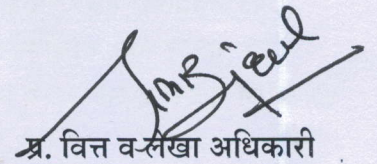 प्र. वित्त व लेखा अधिकारी